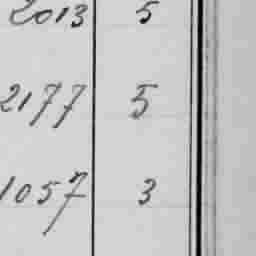 2013 5
2177 5
1057 3